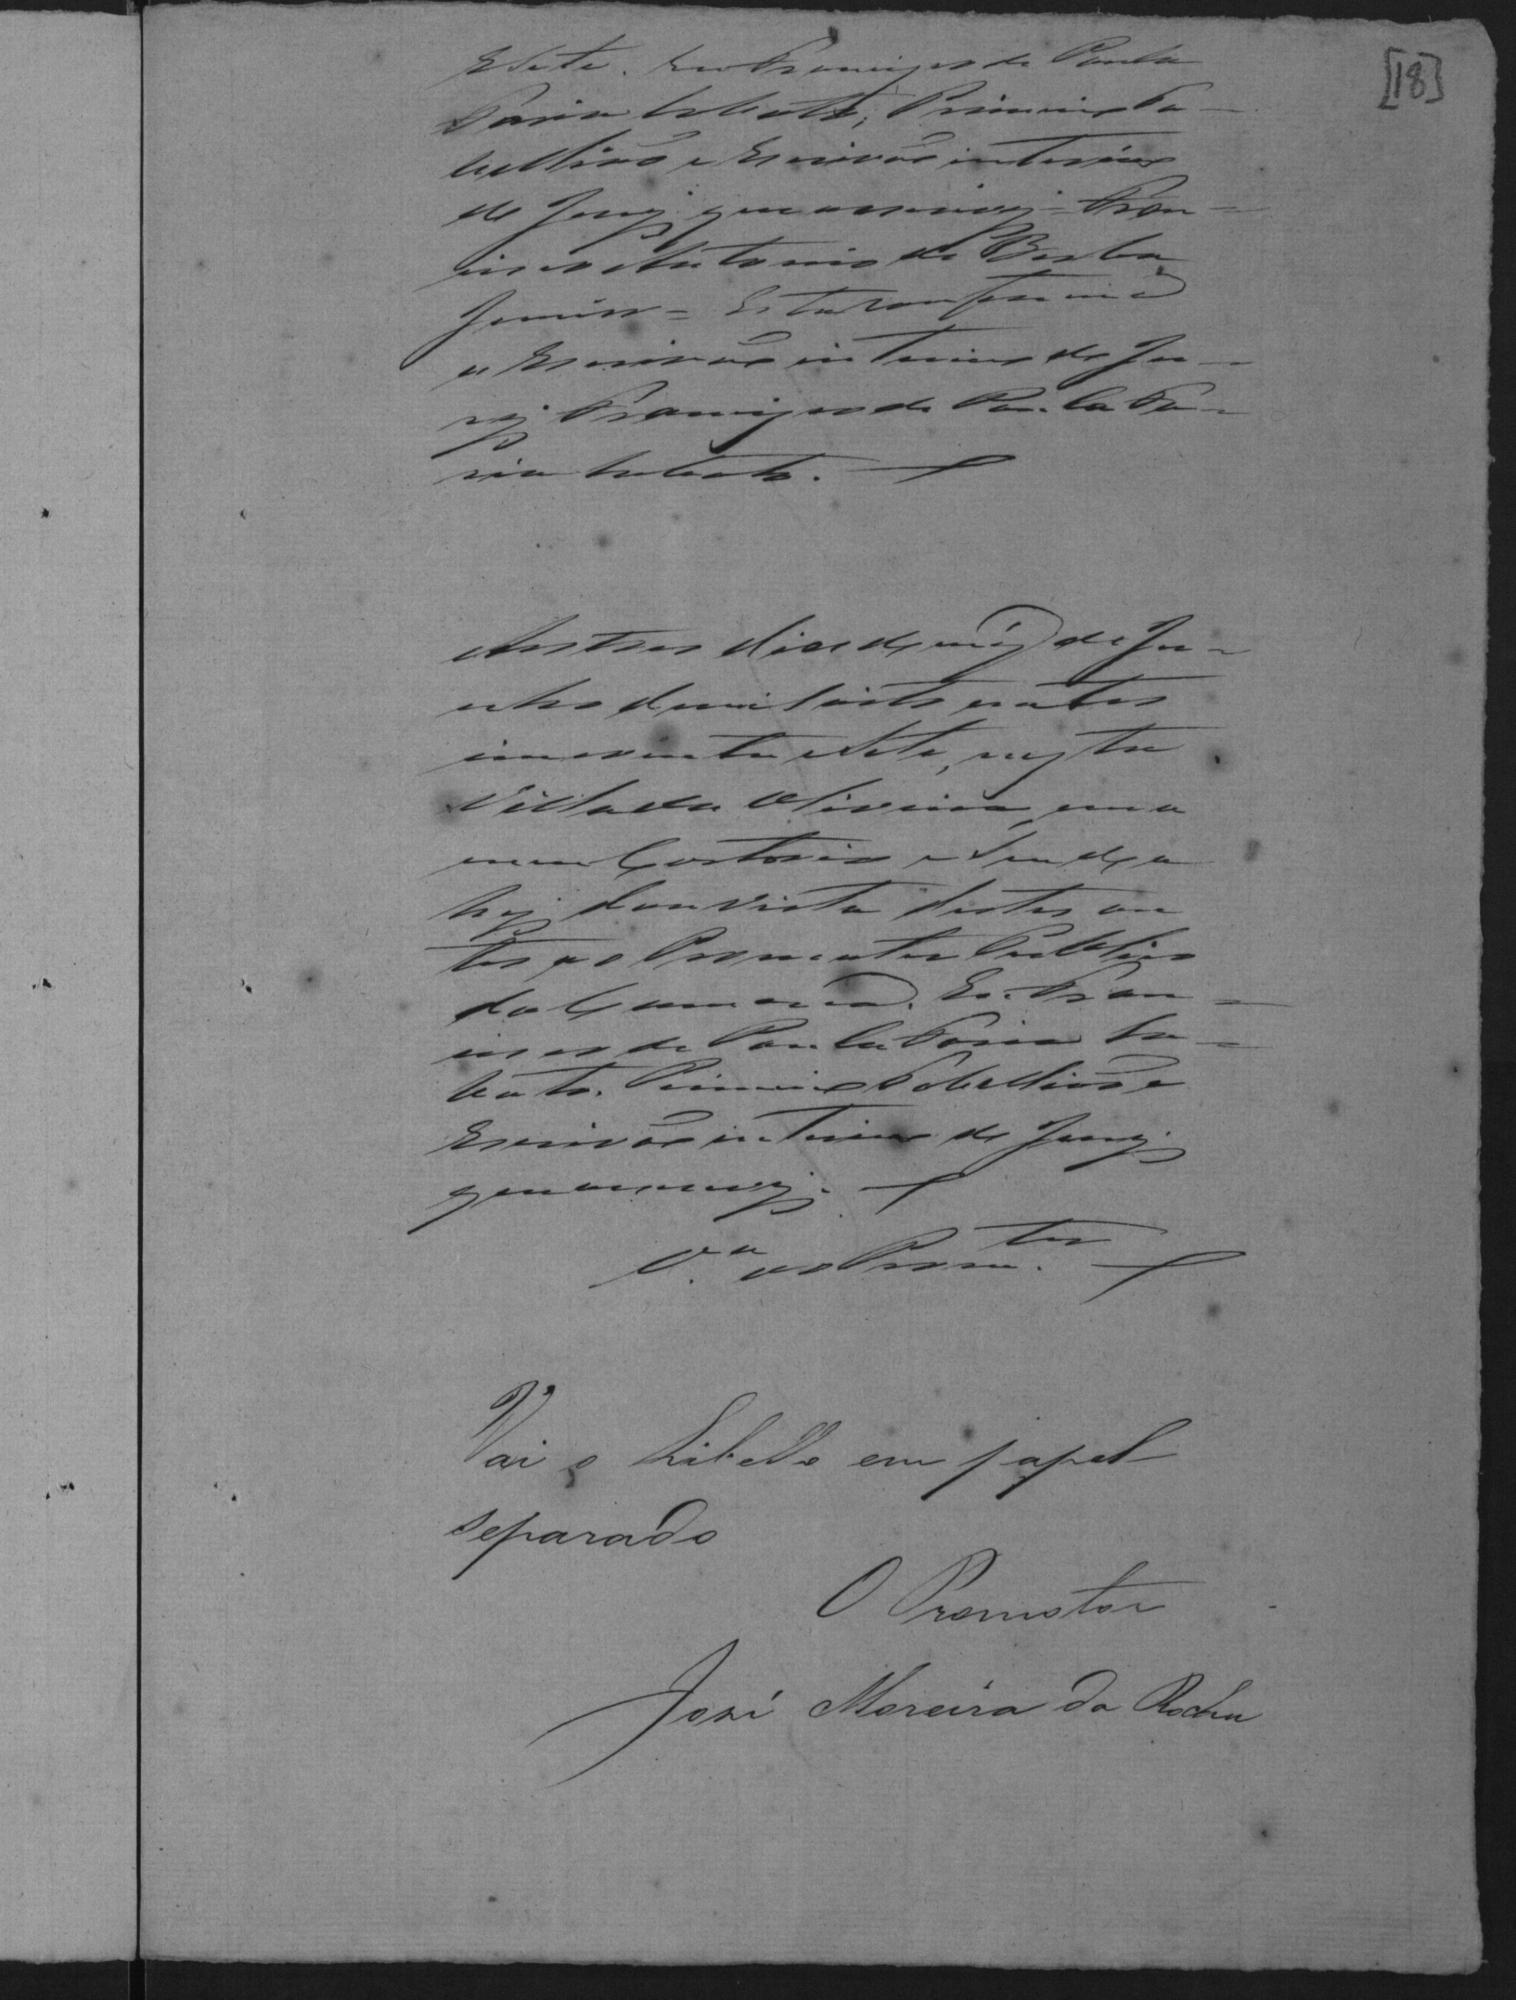 [18]
e Sete. Eu Francisco de Paula
Faria Lobato, Primeiro Ta-
bellião e Escrivão interino
de Jury que escrevy = Fran-
cisco Antonio de Borba
Junior = Está conforme
o Escrivão interino do Ju-
ry Francisco de Paula Fa-
ria Lobato.
Aos tres dias do mez de Ju-
nho de mil oito centos
incoenta e Sete, nesta
Villa da Oliveira em o
meu Cartorio e Sendo a
hy dou vista destes au
tos ao Promotor Publico
da Comarca. Eu Fran-
cisco de Paula Faria Lo-
bato. Primeiro Tabellião e
Escrivão interino do Jury
que escrevy.
V.ᵃ ao Prom.ᵗᵒʳ
Vai o Libello em papel
separado
O Promotor
José Moreira da Rocha